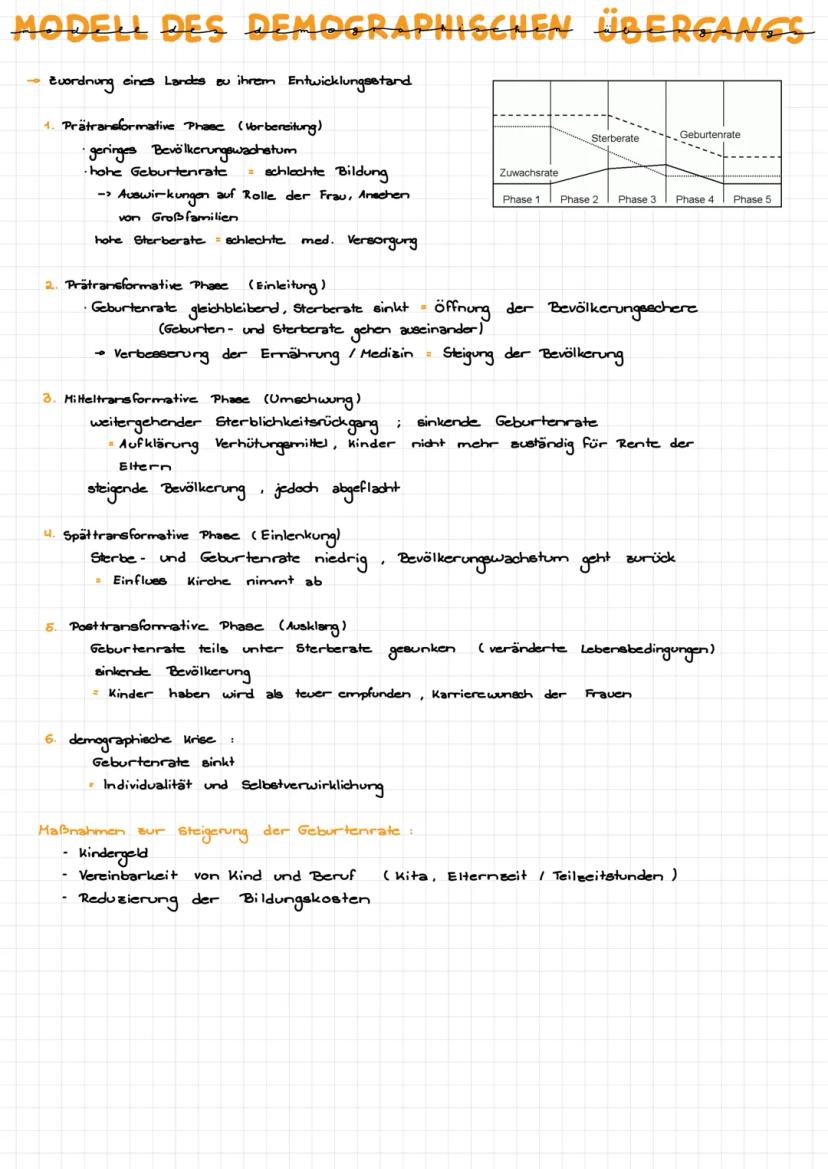 MODELL DES DEMOGRAPHISCHEN ÜBERGANGS
modell des demographischen übergangs
→ Zuordnung eines Landes zu ihrem Entwicklungsstand
1. Prätransformative Phase (Vorbereitung)
· geringes Bevölkerungswachstum
· hohe Geburtenrate = schlechte Bildung
-> Auswirkungen auf Rolle der Frau, Ansehen
von Großfamilien
hohe Sterberate = schlechte med. Versorgung
Sterberate
Geburtenrate
Zuwachsrate
Phase 1 Phase 2 Phase 3 Phase 4 Phase 5
2. Prätransformative Phase (Einleitung)
· Geburtenrate gleichbleibend, Sterberate sinkt = Öffnung der Bevölkerungsschere
(Geburten- und Sterberate gehen auseinander)
→ Verbesserung der Ernährung / Medizin = Steigung der Bevölkerung
3. Mitteltransformative Phase (Umschwung)
weitergehender Sterblichkeitsrückgang ; sinkende Geburtenrate
= Aufklärung Verhütungsmittel, Kinder nicht mehr zuständig für Rente der
Eltern
steigende Bevölkerung , jedoch abgeflacht
4. Spättransformative Phase (Einlenkung)
Sterbe- und Geburtenrate niedrig , Bevölkerungswachstum geht zurück
= Einfluss Kirche nimmt ab
5. Posttransformative Phase (Ausklang)
Geburtenrate teils unter Sterberate gesunken (veränderte Lebensbedingungen)
sinkende Bevölkerung
= Kinder haben wird als teuer empfunden , Karrierewunsch der Frauen
6. demographische Krise :
Geburtenrate sinkt
= Individualität und Selbstverwirklichung
Maßnahmen zur Steigerung der Geburtenrate :
- Kindergeld
- Vereinbarkeit von Kind und Beruf (Kita, Elternzeit / Teilzeitstunden)
- Reduzierung der Bildungskosten